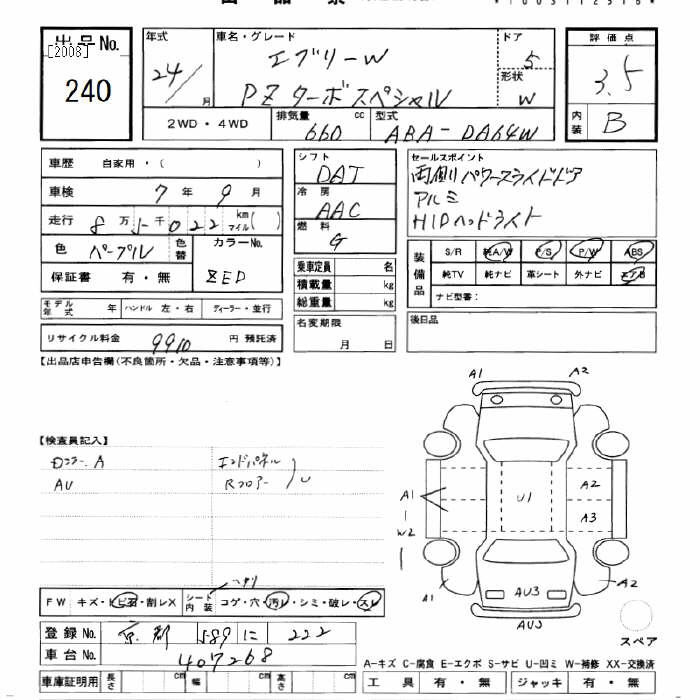 出品No.
[2008]
240
年式
24/
月
車名・グレード
エブリーW
PZ ターボスペシャル
ドア
5
形状
W
評価点
3.5
内装
B
2WD・4WD
排気量
cc
660
型式
ABA-DA64W
車歴 自家用・( )
車検 7 年 9 月
走行 8 万 5 千 0 2 2 km マイル ( )
色 パープル 色替 カラーNo.
保証書 有・無 ZED
モデル年式 年 ハンドル 左・右 ディーラー・並行
リサイクル料金 9910 円 預託済
シフト
DAT
冷房
AAC
燃料
G
乗車定員 名
積載量 kg
総重量 kg
名変期限
月 日
セールスポイント
両側パワースライドドア
アルミ
HIDヘッドライト
装備品
S/R 純A/W P/S P/W ABS
純TV 純ナビ 革シート 外ナビ エアB
ナビ型番:
後日品
【出品店申告欄(不良箇所・欠品・注意事項等)】
【検査員記入】
エンドパネル
AU Rフロアー U
FW キズ・トビ石・割レX シート内装 コゲ・穴・汚レ・シミ・破レ・スレ
ヘタリ
登録No. 京都 589 に 222
車台No. 407268
車庫証明用 長さ cm 幅 cm 高さ cm
A1 A2
A1
W2
U1
A2
A3
A1
AU3
A2
AU3
スペア
A-キズ C-腐食 E-エクボ S-サビ U-凹ミ W-補修 XX-交換済
工具 有・無 ジャッキ 有・無